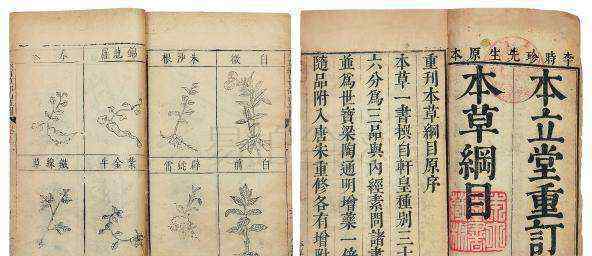 李時珍先生原本
本立堂重訂
本草綱目
重刊本草綱目原序
本草一書撰自軒皇種別三十
六分為三品與內經素問諸書
並為世寶梁陶通明增藥一倍
隨品附入唐宋重修各有增附
白微
朱沙根
錦地羅
白前
辟虺雷
紫金牛
鐵線草